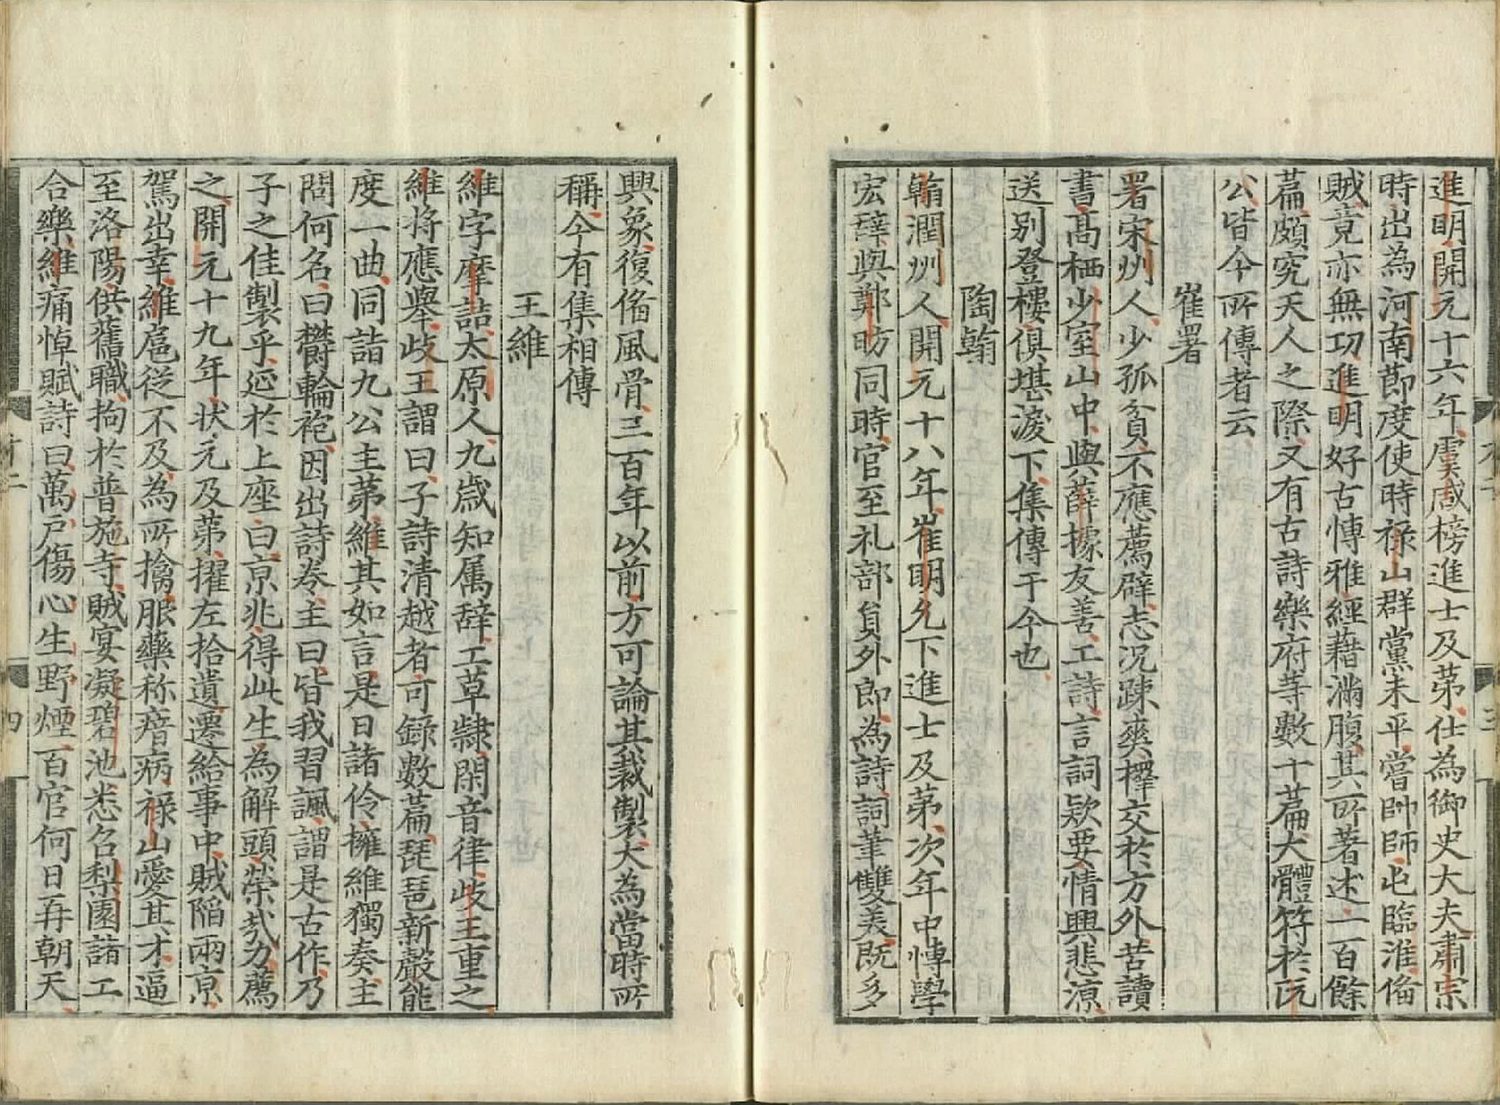 進明開元十六年虞咸榜進士及第仕為御史大夫肅宗
時出為河南節度使時禄山群黨未平嘗帥師屯臨淮俻
賊竟亦無功進明好古愽雅經藉滿腹其所著述一百餘
篇頗究天人之際又有古詩樂府等數十篇大體符於阮
公皆今所傳者云
崔署
署宋州人少孤貧不應薦辟志况疎爽擇交於方外苦讀
書高栖少室山中與薛據友善工詩言詞欵要情興悲凉
送别登樓俱堪淚下集傳于今也
陶翰
翰潤州人開元十八年崔明允下進士及第次年中愽學
宏辭與鄭昉同時官至礼部貟外郎為詩詞筆雙美既多
興象復俻風骨三百年以前方可論其裁製大為當時所
稱今有集相傳
王維
維字摩詰太原人九歲知属辞工草隸閑音律岐王重之
維将應舉岐王謂曰子詩清越者可録數篇琵琶新聲能
度一曲同詣九公主第維其如言是日諸伶擁維獨奏主
問何名曰欝輪袍因出詩卷主曰皆我習諷謂是古作乃
子之佳製乎延於上座曰京兆得此生為解頭榮哉力薦
之開元十九年状元及第擢左拾遺遷給事中賊陷兩京
駕出幸維扈從不及為所擒服藥称瘖病禄山愛其才逼
至洛陽供舊職拘於普施寺賊宴凝碧池悉召梨園諸工
合樂維痛悼賦詩曰萬戶傷心生野煙百官何日再朝天
十二
四